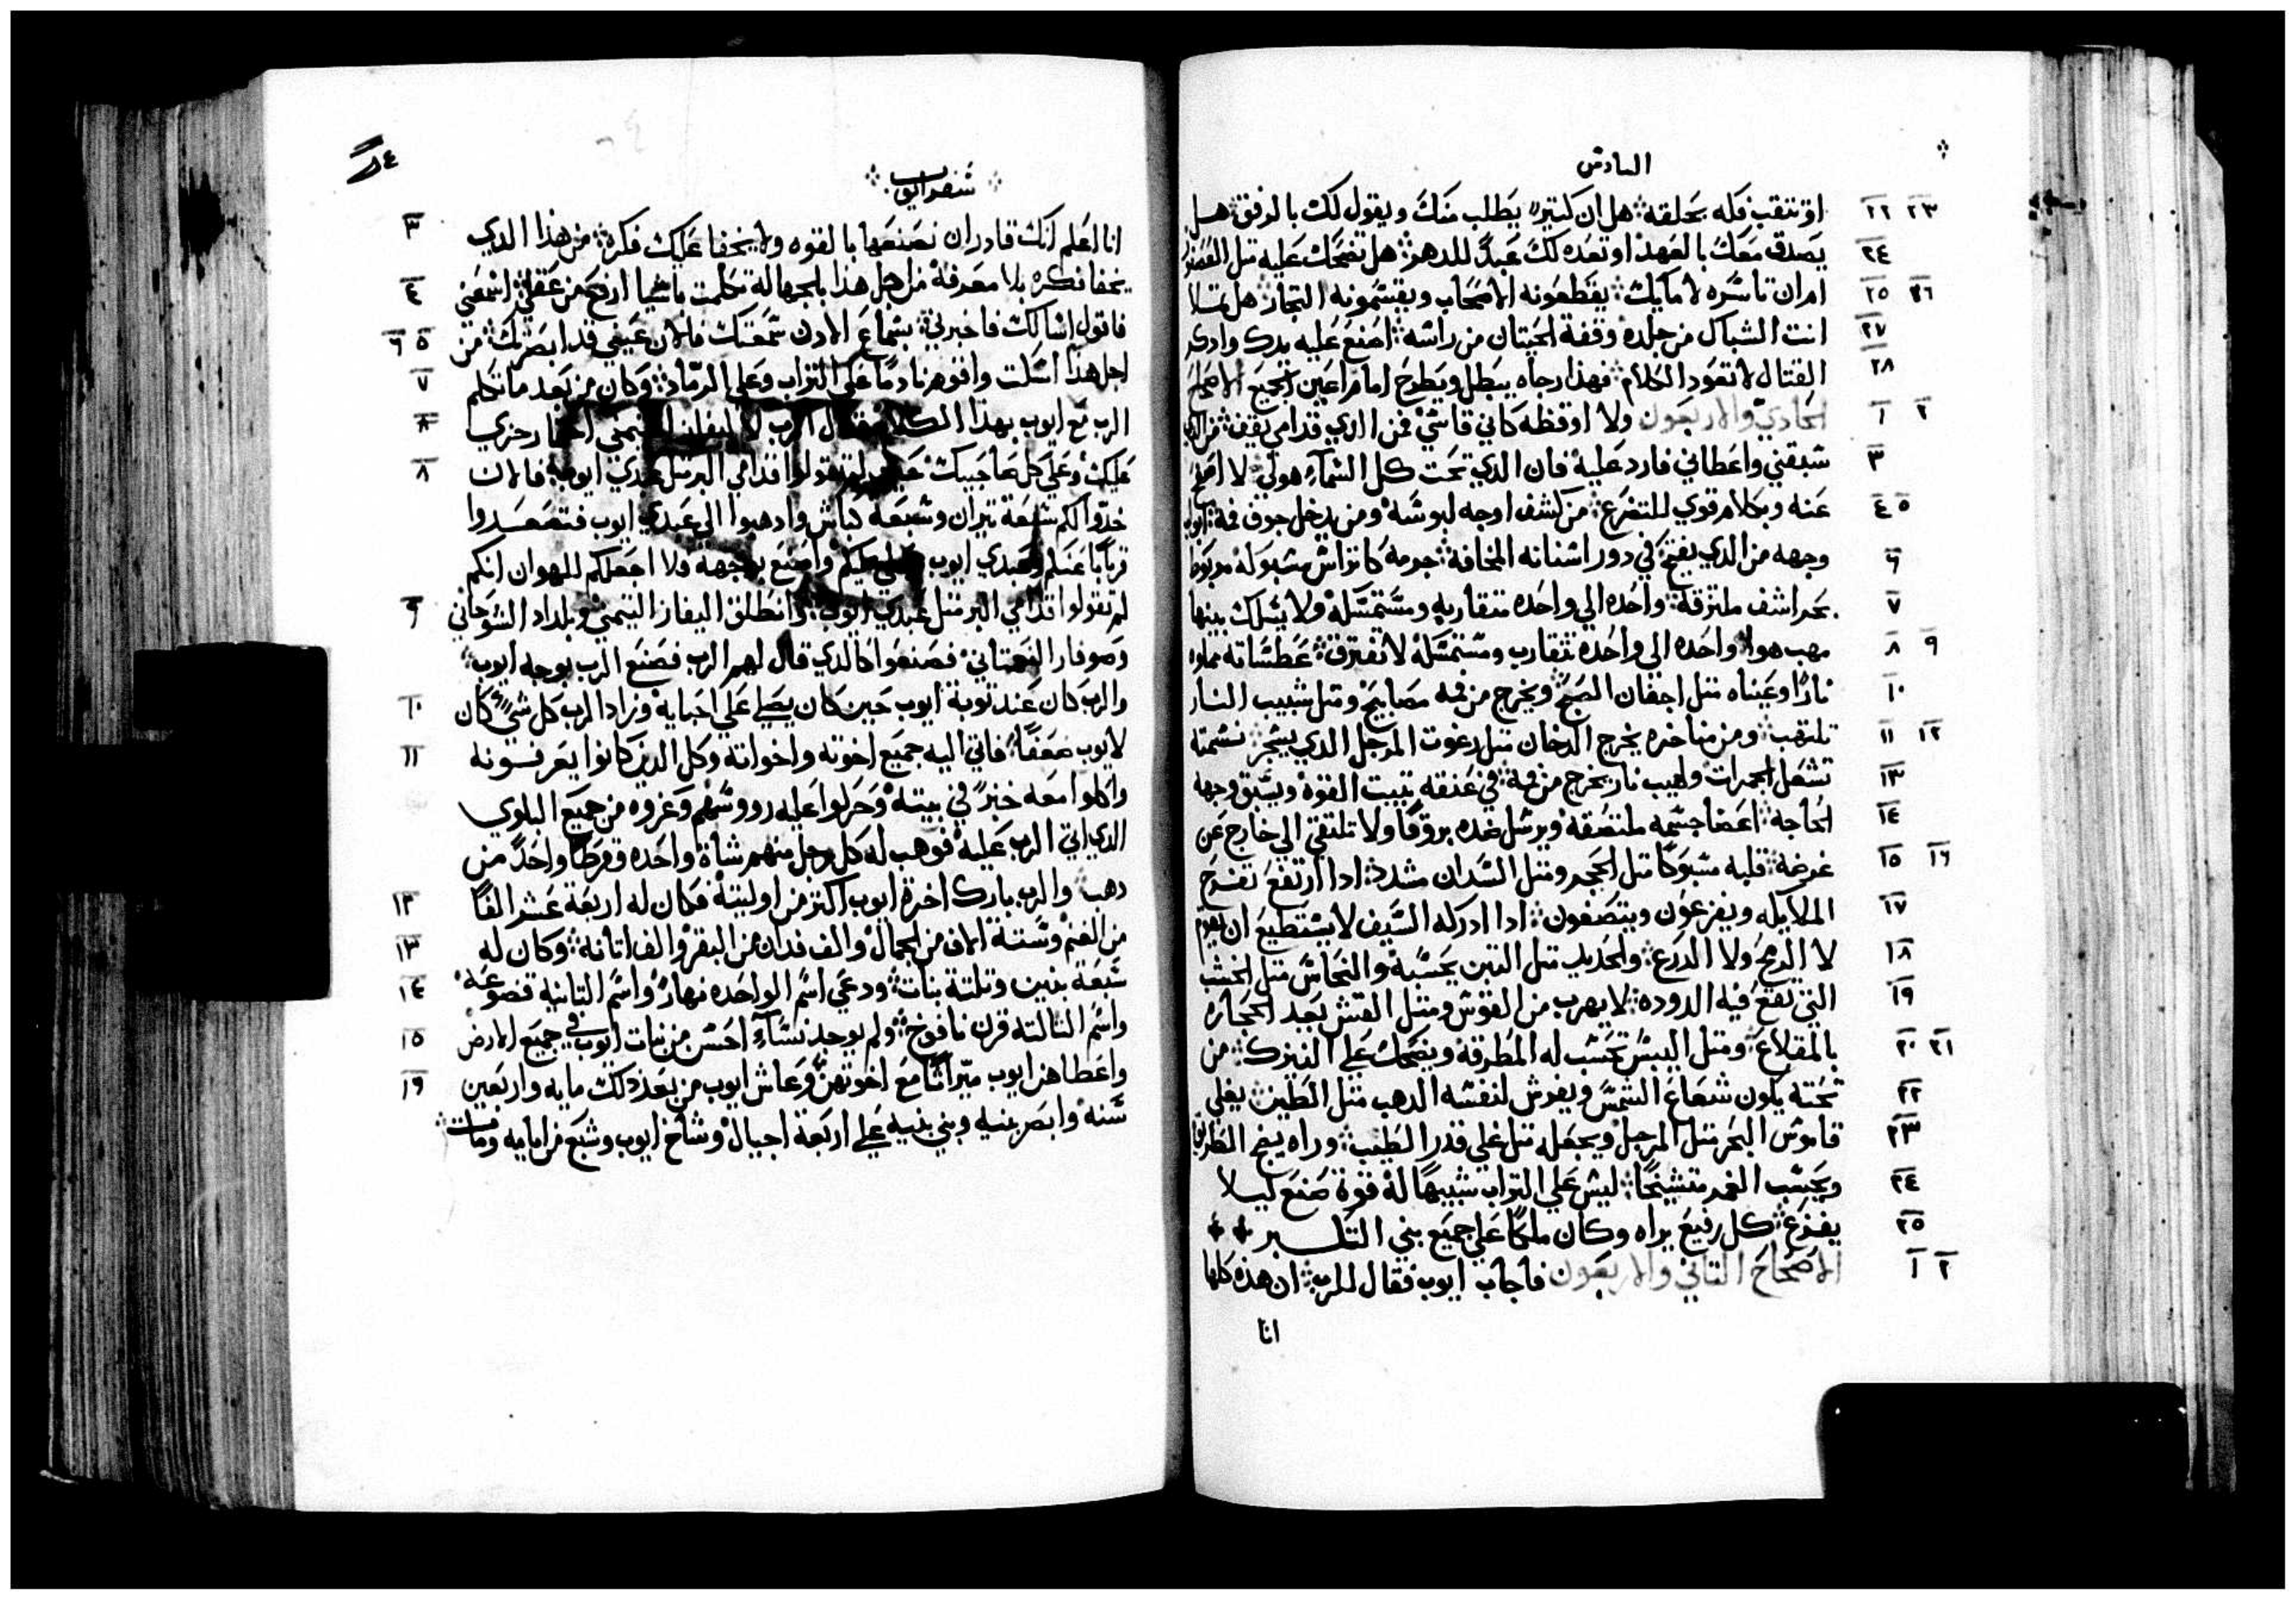 السادس
او تثقب فكه بحلقه هل ان كتير يطلب منك ويقول لك بالرفق هل
يصدق معك بالعهد او تعده لك عبدً للدهر هل تضحك عليه متل العصفور
ام ان تاسره لامايك يقطعونه الاصحاب ويقسمونه التجار هل تملا
انت الشباك من جلده وقفة الحيتان من راسه اصنع عليه يدك وادكر
القتال لا تعود الكلام فهذا رجاه يبطل ويطرح امام اعين الجميع الاصحاح
الحادي والاربعون ولا اوقظه كاني قاسي فمن الدي قدامي يقف من الدي
سبقني واعطاني فارد عليه فان الدي تحت كل السماء هو لي لا اصفح
عنه وبكلام قوي للتضرع من كشف اوجه لبوسه ومن يدخل جوف فمه ابواب
وجهه من الدي يفتح في دور اسنانه المخافة جرمه كاتراس مسبوكه مربوط
بحراشف ملتزقة واحده الي واحده متقاربه ومستمسكه ولا يسلك بينها
مهب هوا واحده الي واحده تتقارب ومستمسكة لا تفترق عطساته مملوه
نارًا وعيناه متل اجفان الصبح ويخرج من فمه مصابيح ومتل شبيب النار
تلتهب ومن مناخره يخرج الدخان متل رغوت المرجل الدي يسجر نسمته
تشعل الجمرات ولهيب نار يخرج من فمه في عنقه تبيت القوه ويسبق وجهه
الحاجه اعضا جسمه ملتصقه ويرسل ضده بروقًا ولا تلتقي الي خارج عن
غرضة قلبه مسبوكًا متل الحجر ومتل السدان مشدد ادا ارتفع تفزع
الملايكه ويفزعون ويتصفون ادا ادركه السيف لا يستطيع ان يقوم
لا الرمح ولا الدرع والحديد متل التبن يحسبه والنحاس متل الخشب
التي تقع فيه الدوده لا يهرب من القوس ومتل القش يعد الحجاره
بالمقلاع ومتل اليبس تحسب له المطرقة ويضحك علي النيزك من
تحته يكون شعاع الشمس ويفرش لنفسه الدهب متل الطين يغلي
قاموس البحر متل المرجل ويجعله متل غلي قدر الطيب وراه ينج الطريق
ويحسب الغمر متشيخًا ليس علي التراب شبيهًا له قوة صنع ليلا
يفزع كل رفيع يراه وكان ملكًا علي جميع بني التكبر
الاصحاح التاني والاربعون فاجاب ايوب فقال للرب ان هذه كلها
انا
سفر ايوب
انا اعلم انك قادر ان تصنعها بالقوه ولا يخفا عليك فكرة من هذا الدي
يخفا فكره بلا معرفة من اجل هذا بالجهالة تكلمت باشيا ارفع من عقلي اسمعني
فاقول اسالك فاخبرني بسماع الادن سمعتك فالان عيني قد ابصرتك من
اجل هذا اسكت واقوم نادمًا علي التراب وعلي الرماد وكان من بعد ما تكلم
الرب مع ايوب بهذا الكلام قال الرب لاليفاز التيمني احما رجزي
عليك وعلي كل صاحبيك لم تقولوا قدامي البر متل عبدي ايوب فالان
خدوا لكم سبعة تيران وسبعة كباش وادهبوا الي عبدي ايوب فتصعدوا
قربانًا عنكم وعبدي ايوب يصلي عليكم واصنع بوجهه ولا اجعلكم للهوان انكم
لم تقولوا قدامي البر متل عبدي ايوب وانطلق اليفاز التيمني وبلداد الشوحاني
وصوفار النعماتي فصنعوا كالدي قال لهم الرب فصنع الرب بوجه ايوب
والرب كان عند توبة ايوب حين كان يصلي علي احبايه وزاد الرب كل شي كان
لايوب ضعفًا فاتي اليه جميع اخوته واخواته وكل الدين كانوا يعرفونه
واكلوا معه خبزً في بيته وحركوا عليه رووسهم وعزوه من جميع البلوي
الدي اتي الرب عليه فوهب له كل رجل منهم شاة واحده وقرطًا واحدً من
دهب والرب بارك اخرة ايوب اكتر من اوليته فكان له اربعة عشر الفًا
من الغنم وستة الاف من الجمال والف فدان من البقر والف اتانة وكان له
سبعة بنين وتلتة بنات ودعي اسم الواحده نهار واسم التانيه قصوعة
واسم التالته قرن نافوخ ولم يوجد نساء احسن من بنات ايوب في جميع الارض
واعطاهن ايوب ميراتًا مع اخوتهن وعاش ايوب من بعد ذلك مايه واربعين
سنه وابصر بنيه وبني بنيه علي اربعة اجيال وشاخ ايوب وشبع من ايامه ومات